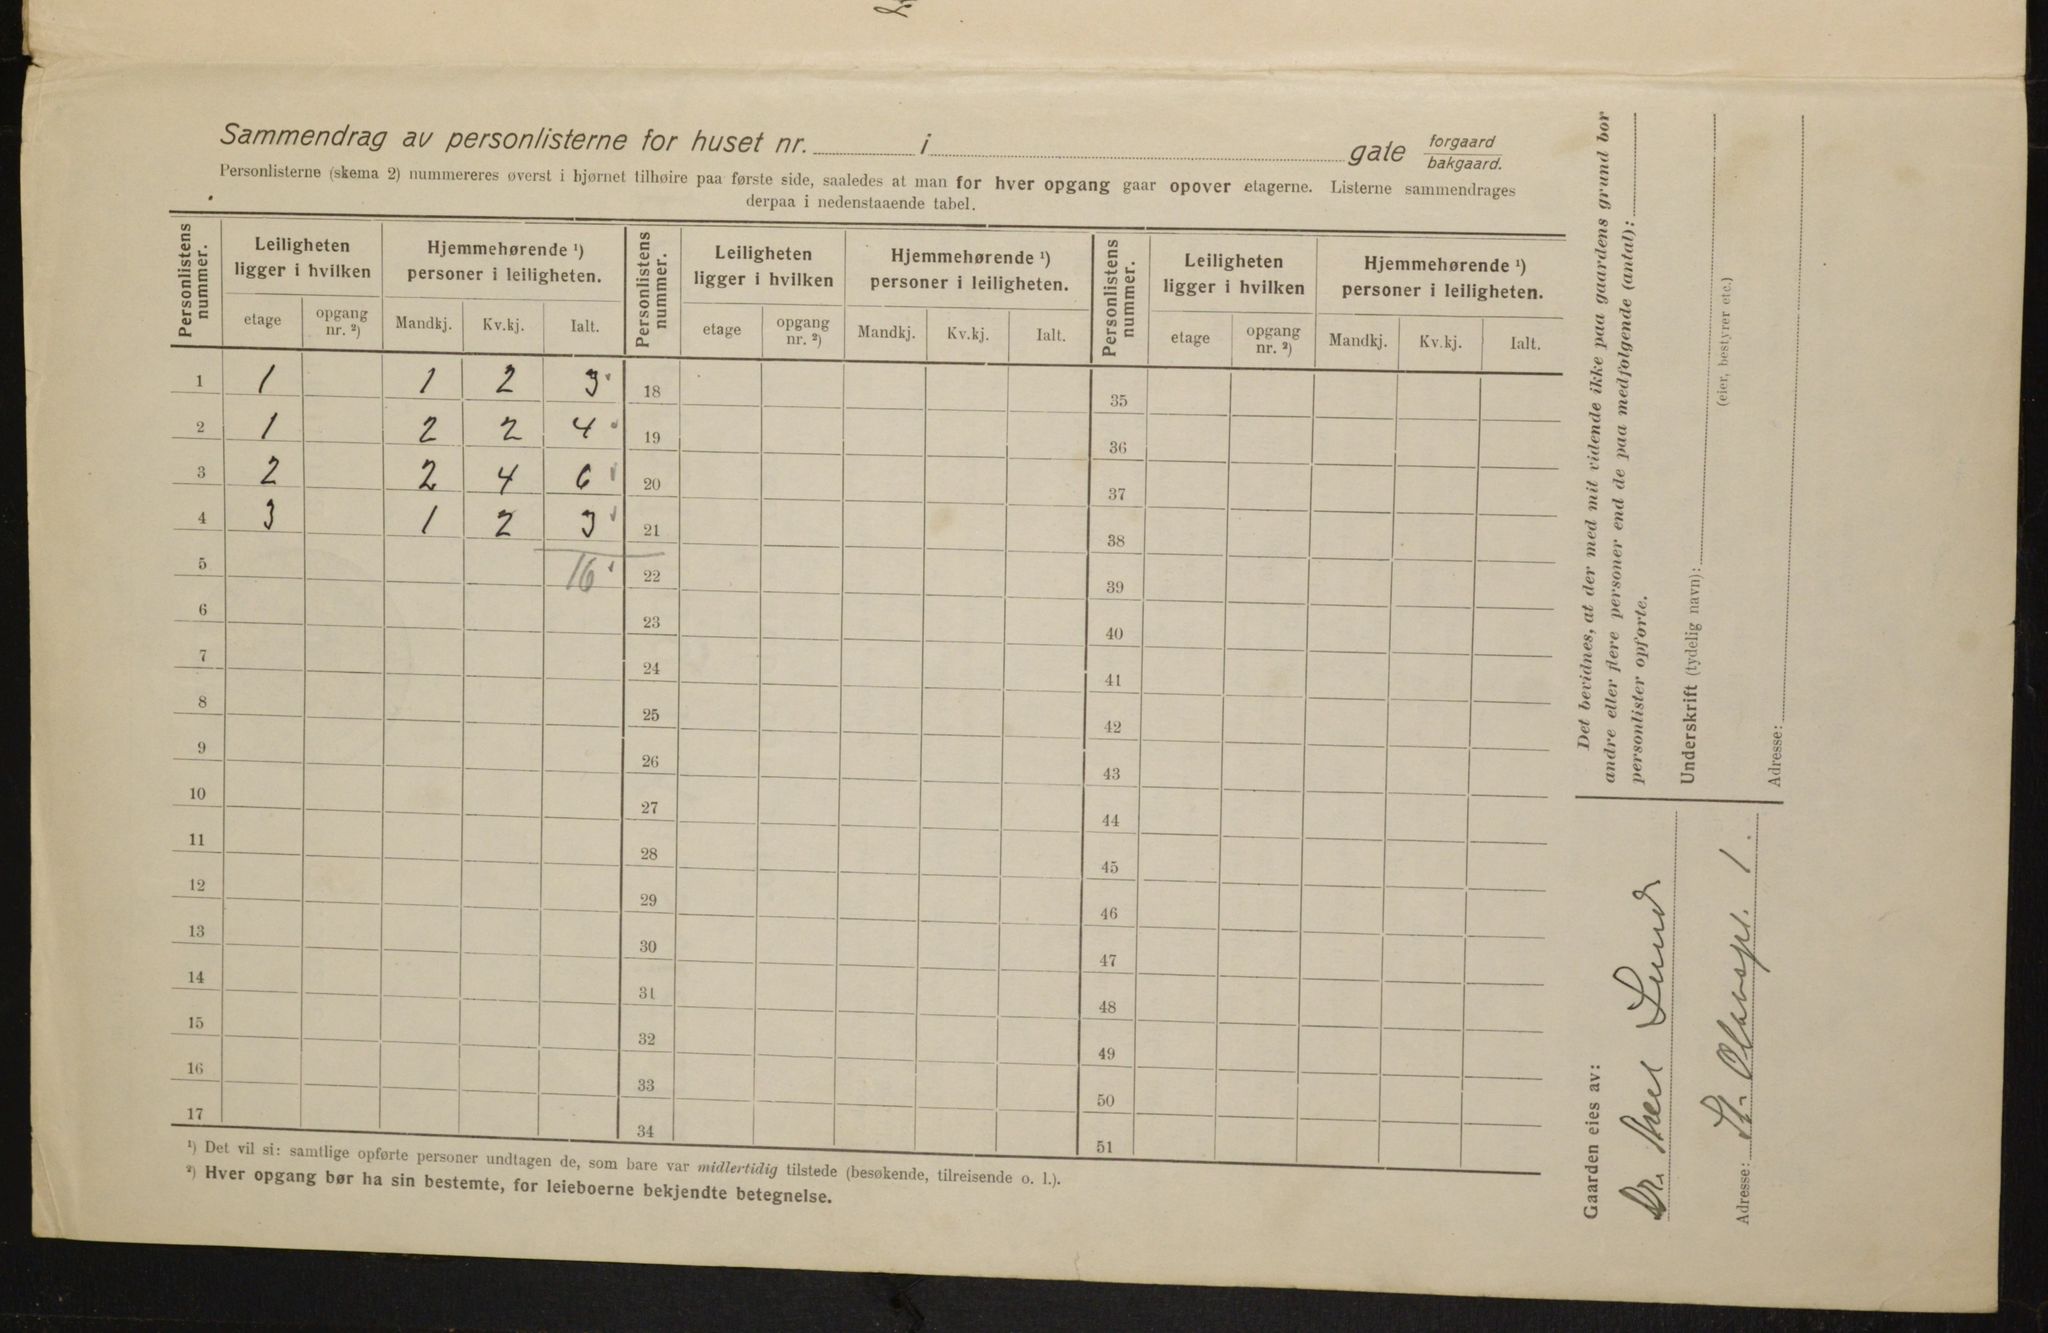 Sammendrag av personlisterne for huset nr. i gate forgaard bakgaard.
Personlisterne (skema 2) nummereres øverst i hjørnet tilhøire paa første side, saaledes at man for hver opgang gaar opover etagerne. Listerne sammendrages
derpaa i nedenstaaende tabel.
Personlistens nummer. Leiligheten ligger i hvilken Hjemmehørende ¹) personer i leiligheten. Personlistens nummer. Leiligheten ligger i hvilken Hjemmehørende ¹) personer i leiligheten. Personlistens nummer. Leiligheten ligger i hvilken Hjemmehørende ¹) personer i leiligheten.
etage opgang nr. ²) Mandkj. Kv.kj. Ialt. etage opgang nr. ²) Mandkj. Kv.kj. Ialt. etage opgang nr. ²) Mandkj. Kv.kj. Ialt.
1 1 1 2 3 18 35
2 1 2 2 4 19 36
3 2 2 4 6 20 37
4 3 1 2 3 21 38
5 16 22 39
6 23 40
7 24 41
8 25 42
9 26 43
10 27 44
11 28 45
12 29 46
13 30 47
14 31 48
15 32 49
16 33 50
17 34 51
¹) Det vil si: samtlige opførte personer undtagen de, som bare var midlertidig tilstede (besøkende, tilreisende o. l.).
²) Hver opgang bør ha sin bestemte, for leieboerne bekjendte betegnelse.
Det bevidnes, at der med mit vidende ikke paa gaardens grund bor
andre eller flere personer end de paa medfølgende (antal):
personlister opførte.
Underskrift (tydelig navn):
(eier, bestyrer etc.)
Adresse:
Gaarden eies av:
Dr. Lund
Adresse: St. Olavspl. 1.